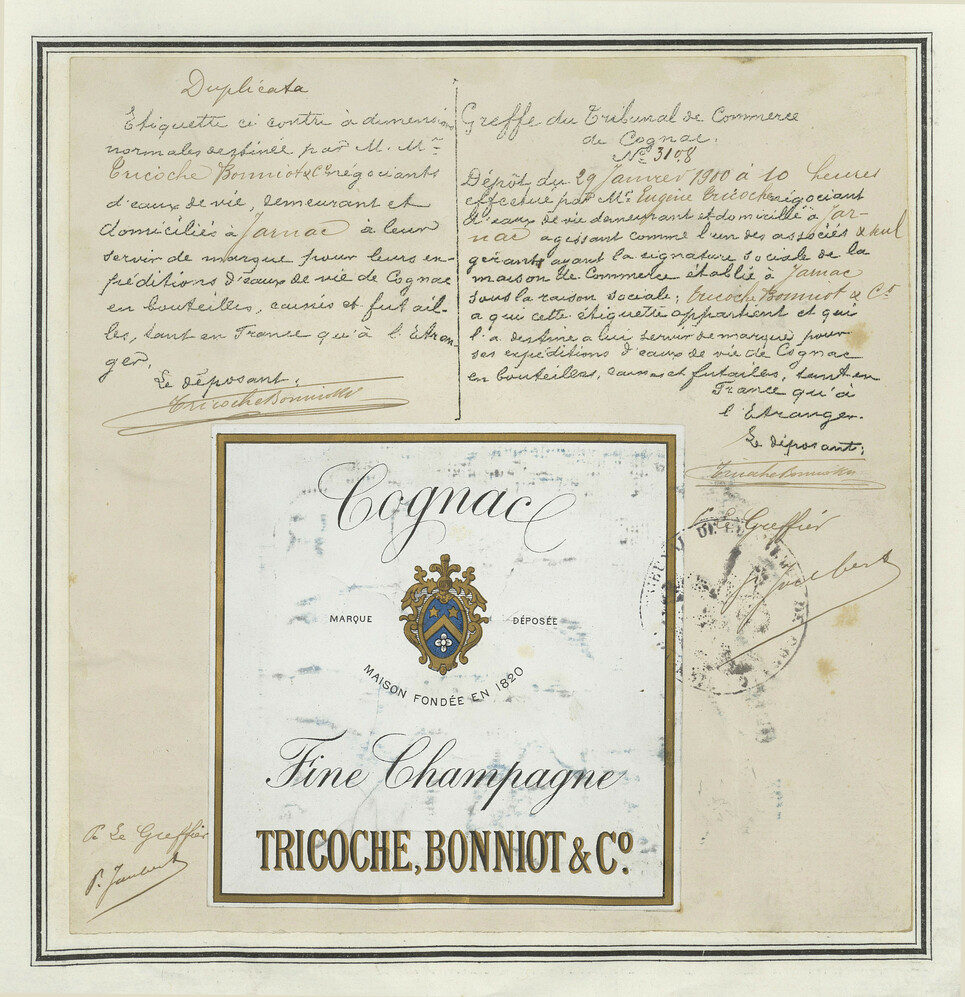 Duplicata
Etiquette ci contre à dimensions
normales destinée par M. Mrs
Tricoche Bonniot & Co négociants
d'eaux de vie, demeurant et
domiciliés à Jarnac à leur
servir de marque pour leurs ex-
péditions d'eaux de vie de Cognac
en bouteilles, caisses et futail-
les, tant en France qu'à l'Etran-
ger.
Le déposant:
Tricoche Bonniot & Co
Greffe du Tribunal de Commerce
de Cognac.
No 3108
Dépôt du 29 Janvier 1900 à 10 heures
effectué par Mr Eugène Tricoche négociant
d'eaux de vie demeurant et domicilié à Jar-
nac agissant comme l'un des associés & seul
gérant ayant la signature sociale de la
maison de Commerce établie à Jarnac
sous la raison sociale; Tricoche Bonniot & Co
a qui cette étiquette appartient et qui
l'a destiné a lui servir de marque pour
ses expéditions d'eaux de vie de Cognac
en bouteilles, caisses et futailles, tant en
France qu'à
l'Etranger.
Le déposant:
Tricoche Bonniot & Co
Le Greffier
P. Joubert
Cognac
MARQUE DÉPOSÉE
MAISON FONDÉE EN 1820
Fine Champagne
TRICOCHE, BONNIOT & Co.
P. Le Greffier
P. Joubert